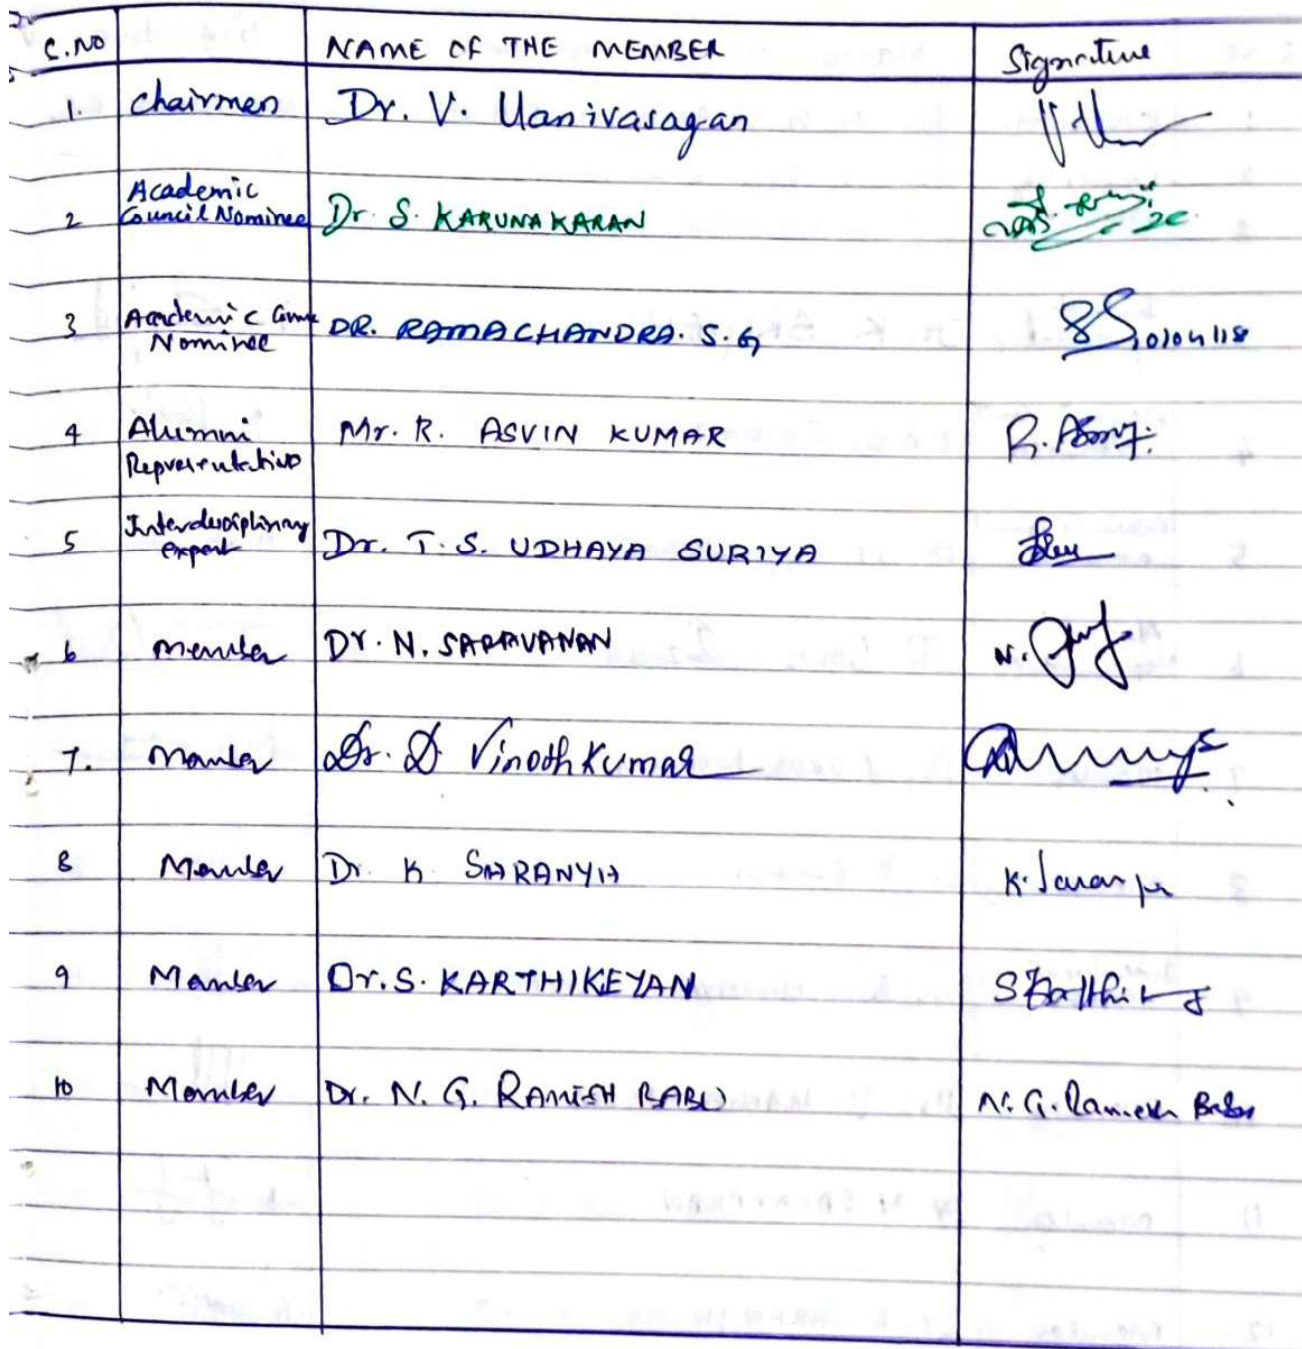 S.NO NAME OF THE MEMBER Signature
1. Chairmen Dr. V. Manivasagan
Academic
2 Council Nominee Dr. S. KARUNAKARAN
3 Academic Coun DR. RAMACHANDRA. S. G
Nominee
4 Alumni Mr. R. ASVIN KUMAR
Representative
5 Interdisciplinary Dr. T. S. UDHAYA SURIYA
expert
6 Member Dr. N. SARAVANAN N.
7. Member Dr. D Vinoth Kumar
8 Member Dr. K SHRANYA K. Saranya
9 Member Dr. S. KARTHIKEYAN
10 Member Dr. N. G. RAMESH BABU N. G. Ramesh Babu